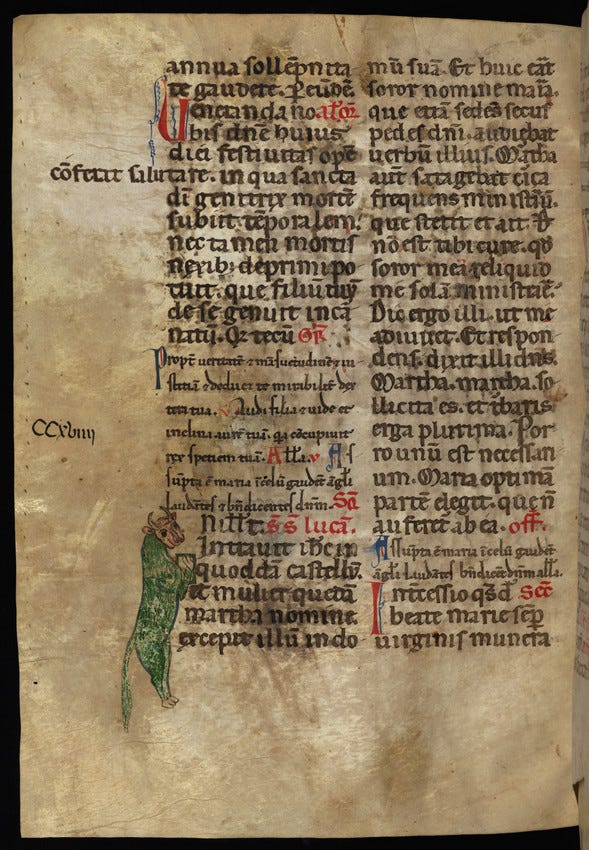 annua sollēpnita
te gaudere. P eundē.
Ueneranda no alꝰ or̄.
bis dn̄e huius
diei festiuitas opē
cōferat salutare. in qua sancta
dī genitrix mortē
subiit tēporalem.
nec tamen mortis
nexibꝫ deprimi po
tuit. que filiū tuū
de se genuit incar
natū. Qꝛ tecū Gꝛ.
Propt̄ ueritatē ⁊ māsuetudinē ⁊ iu
stitiā ⁊ deducet te mirabilit̄ dex
tera tua. v Audi filia ⁊ uide et
inclina aurē tuā. qa cōcupiuit
rex speciem tuā. All̄a. v As
sūpta ē maria ī celū gaudēt āgl̄i
laudātes ⁊ bn̄dicentes dn̄m. Sc̄d
CCXviiii
N ill̄ t. s̄ s̄ lucā.
Intrauit ih̄c in
quoddā castellū.
et mulier quedā
martha nomine
excepit illū in do
mū suā. Et huic erat
soror nomine maria.
que etiā sedens secus
pedes dn̄i. audiebat
uerbū illius. Martha
aut̄ satagebat circa
frequens ministeriū.
que stetit et ait. D̄
nō est tibi cure. qd̄
soror mea reliquid
me solā ministrare.
Dic ergo illi. ut me
adiuuet. Et respon
dens. dixit illi dn̄s.
Martha. martha. so
llicita es. et t̄baris
erga plurima. Por
ro unū est necessari
um. Maria optimā
partē elegit. que n̄
auferet̄ ab ea. off̄.
Assūpta ē maria ī celū gaudēt
āgl̄i laudātes bn̄dicēt dn̄m all̄a.
Intercessio qs̄ d̄ Sec̄
beate marie semp̄
uirginis munera